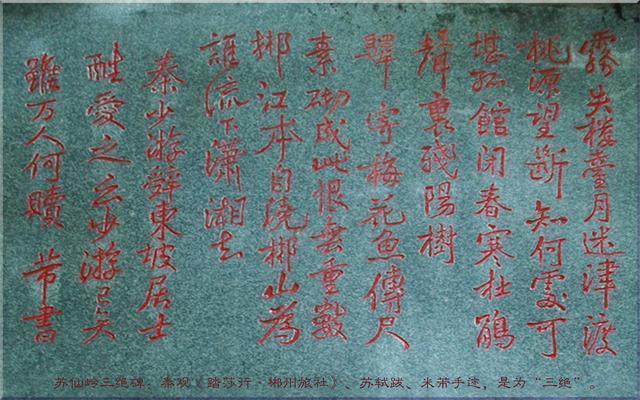 霧失楼臺月迷津渡
桃源望斷知何處可
堪孤館閉春寒杜鵑
聲裏残陽樹
驛寄梅花魚傳尺
素砌成此恨無重數
郴江本自繞郴山為
誰流下瀟湘去
秦少游辭東坡居士
酷愛之云少游已矣
雖万人何贖 芾書
苏仙岭三绝碑。秦观《踏莎行·郴州旅社》、苏轼跋、米芾手迹，是为“三绝”。